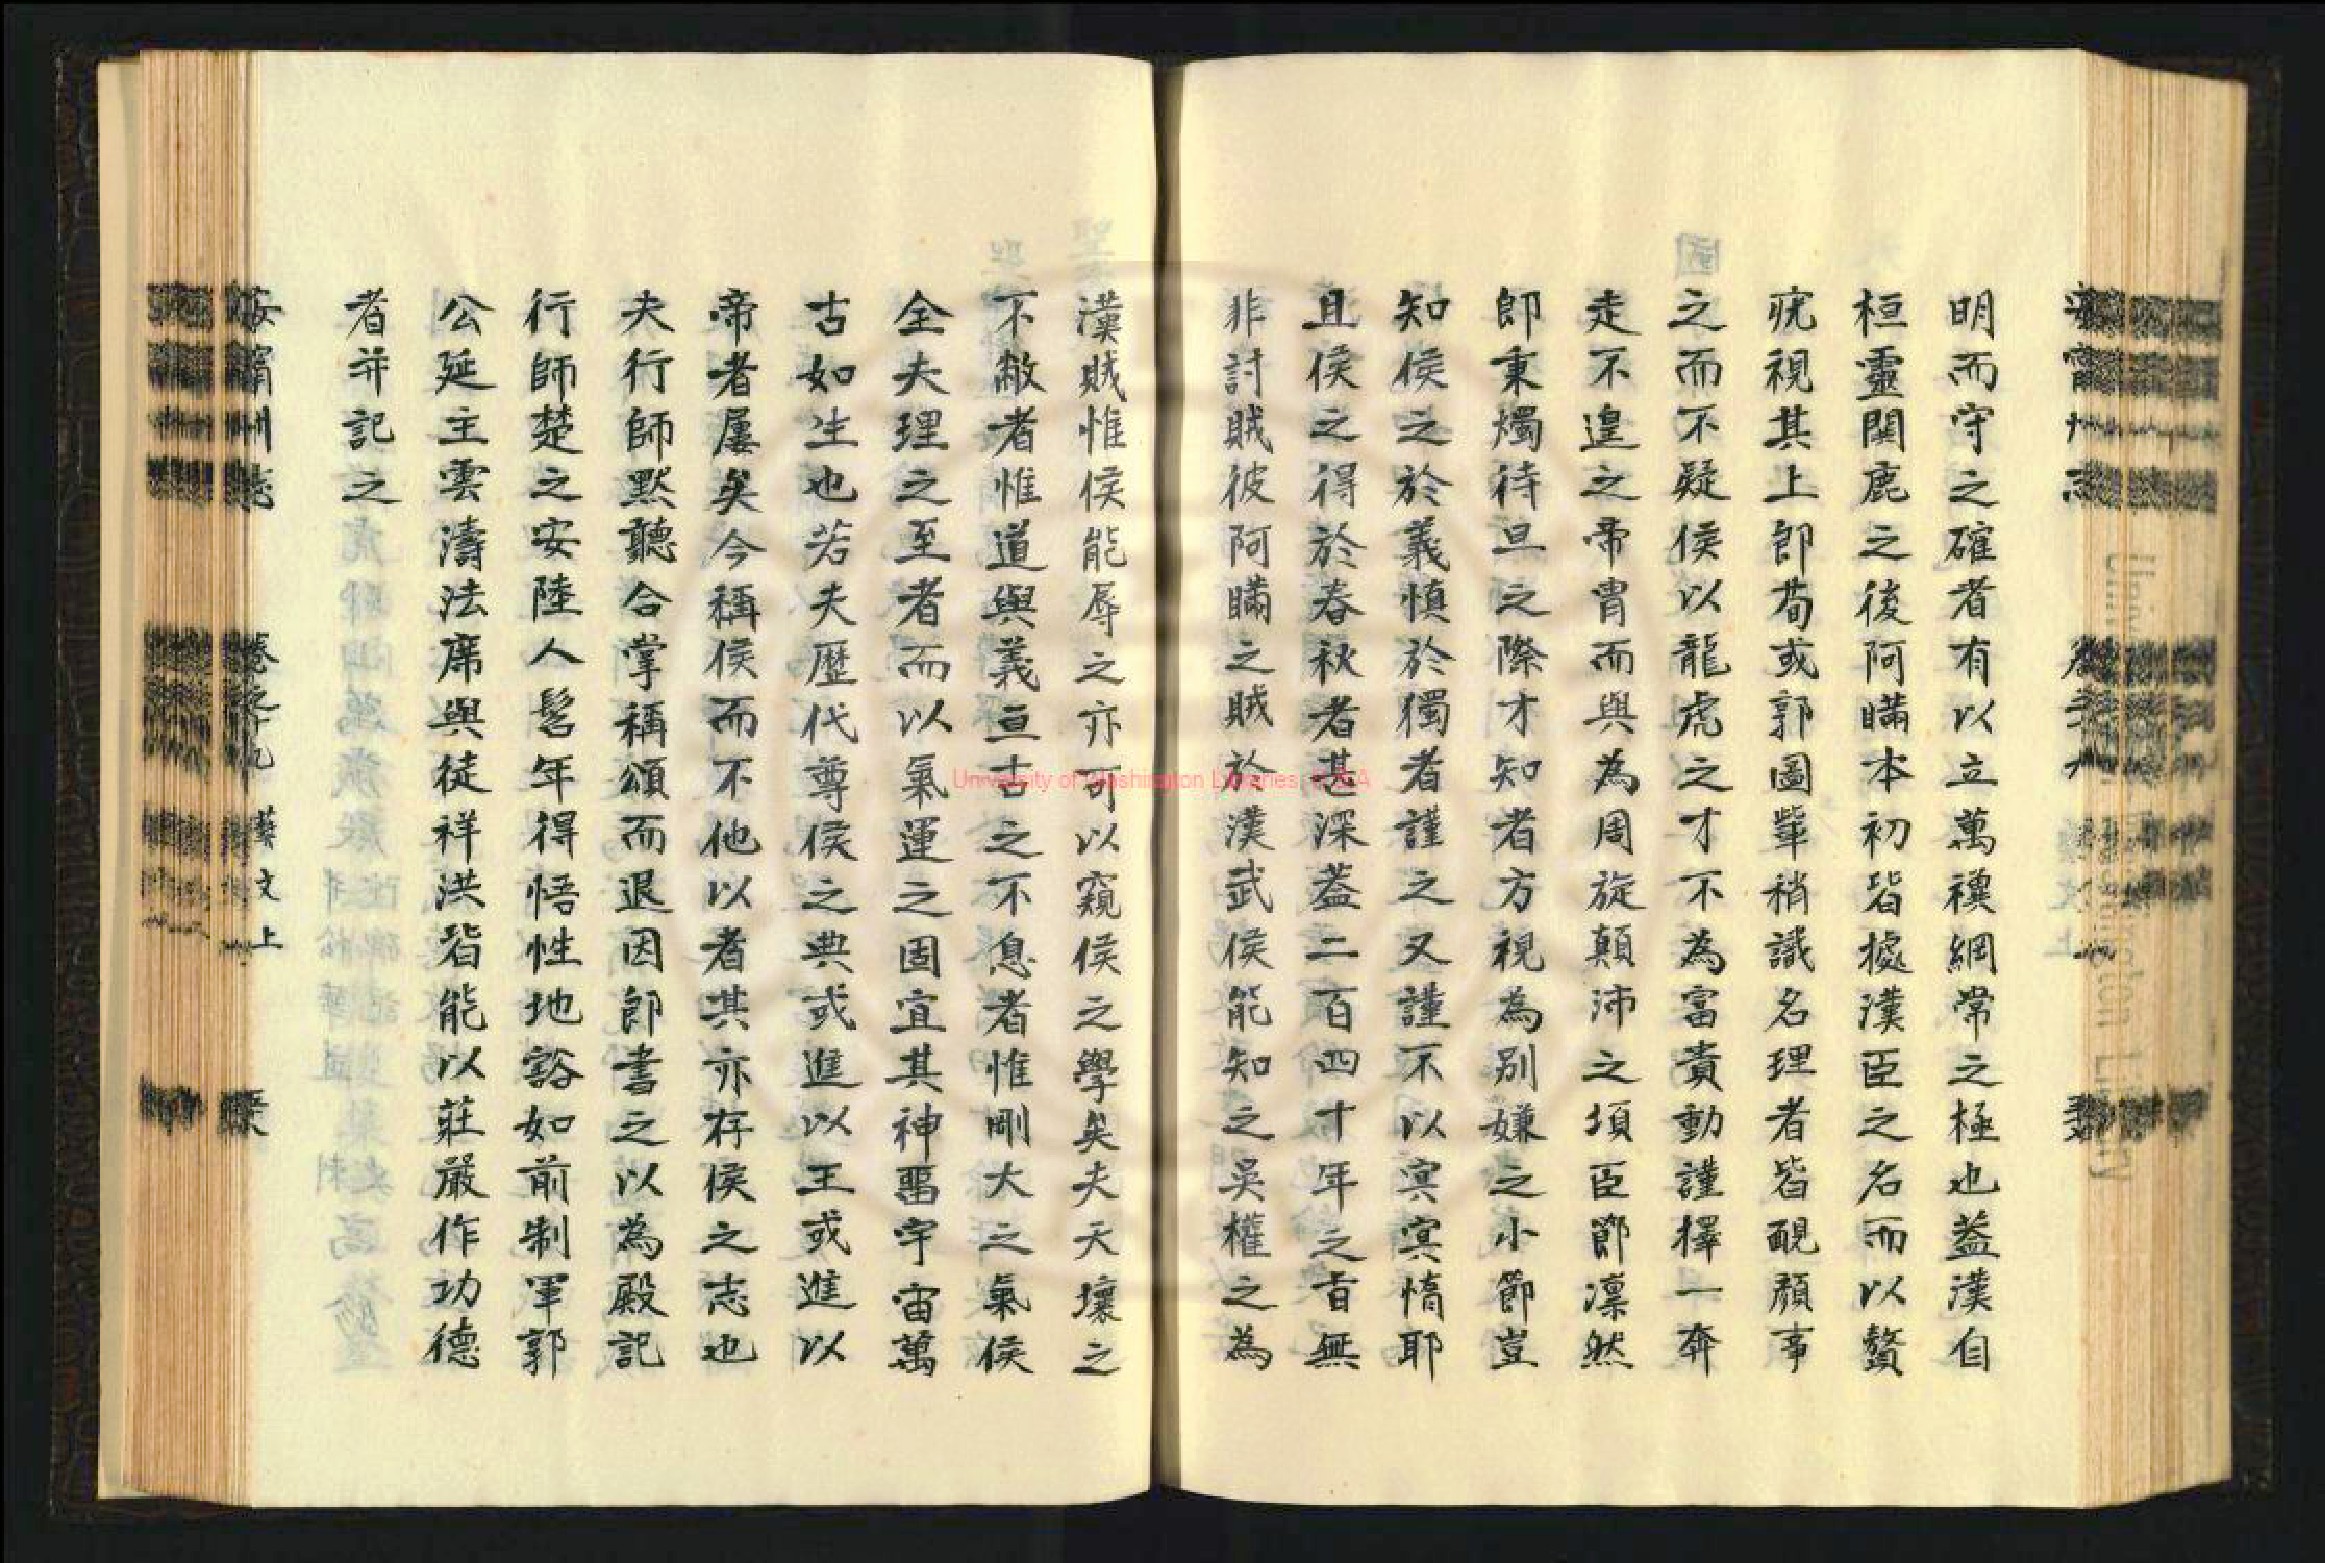 明而守之確者有以立萬禩綱常之極也葢漢自
桓靈関鹿之後阿瞞本初皆據漢臣之名而以贅
疣視其上郎荀或郭圖輩稍識名理者皆靦顔事
之而不疑侯以龍虎之才不為富貴動謹擇一奔
走不遑之帝胄而與為周旋顛沛之項臣節凛然
郎秉燭待旦之際才知者方視為别嫌之小節豈
知侯之於義慎於獨者謹之又謹不以㝠㝠惰耶
且侯之得於春秋者甚深葢二百四十年之旨無
非討賊彼阿瞞之賊於漢武侯能知之吳權之為
漢賊惟侯能辱之亦可以窺侯之學矣夫天壤之
不敝者惟道與義亘古之不息者惟剛大之氣侯
全夫理之至者而以氣運之固宜其神畱宇宙萬
古如生也若夫歷代尊侯之典或進以王或進以
帝者屢矣今稱侯而不他以者其亦存侯之志也
夫行師默聽合掌稱頌而退因郎書之以為殿記
行師楚之安陸人髫年得悟性地豁如前制軍郭
公延主雲濤法席與徒祥洪皆能以莊嚴作功德
者并記之
安寧州志 卷之十九 藝文上
University of Washington Libraries